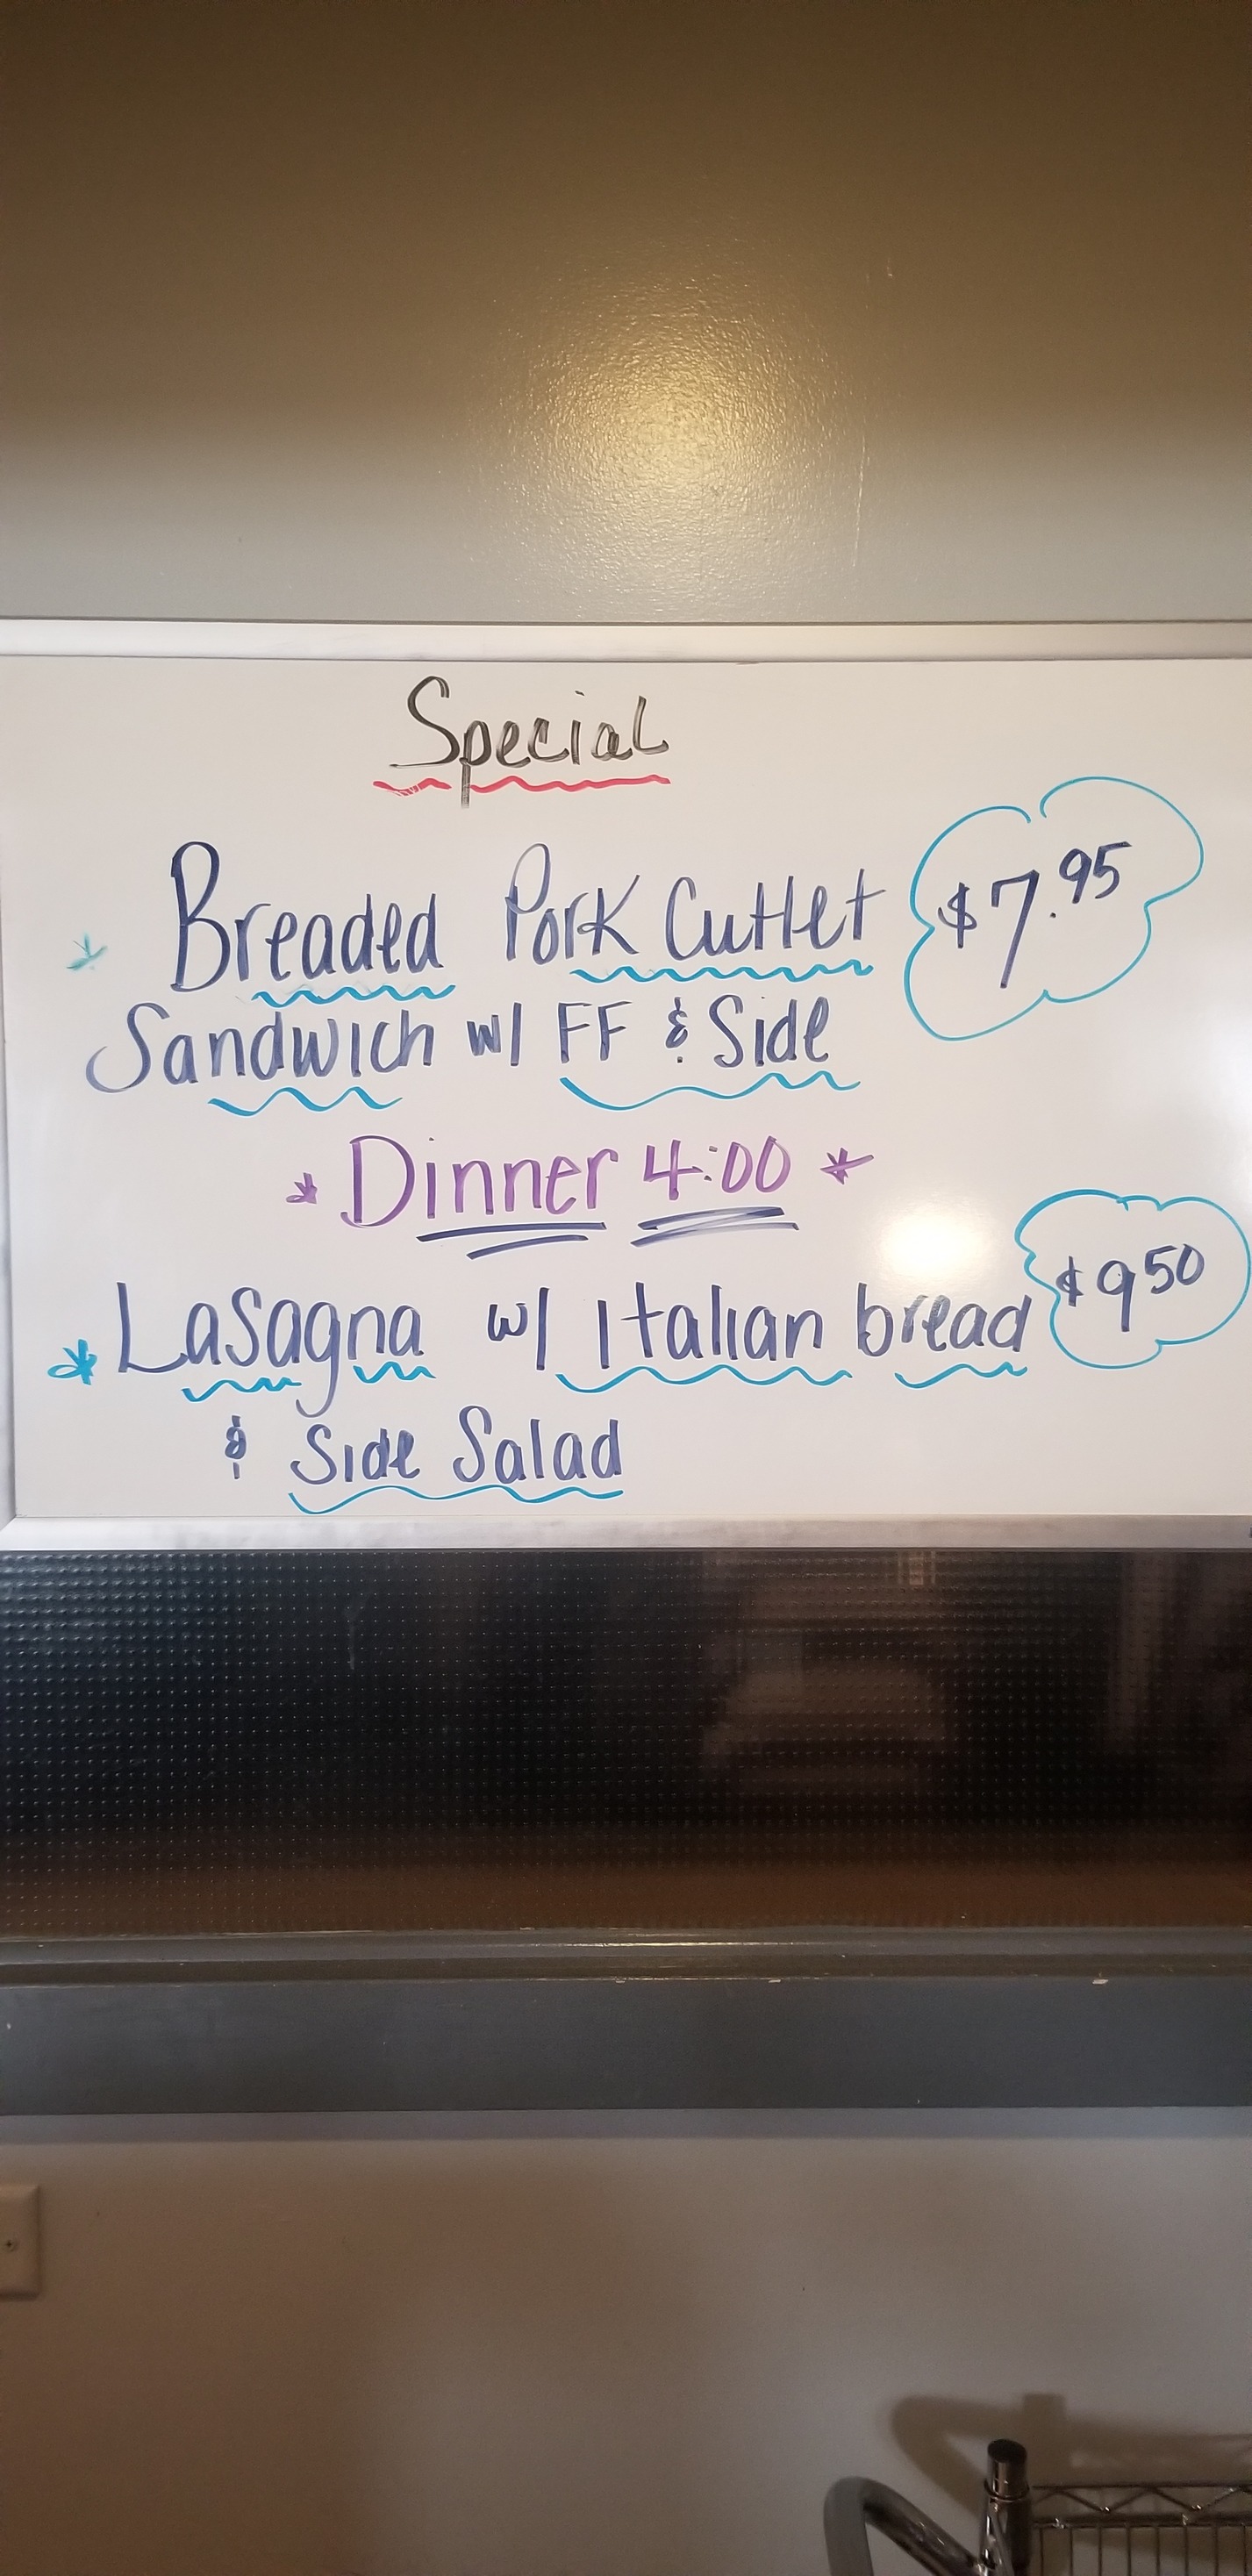 Special
* Breaded Pork Cutlet $7.95
Sandwich w/ FF & Side
* Dinner 4:00 *
* Lasagna w/ Italian bread $9 50
& Side Salad